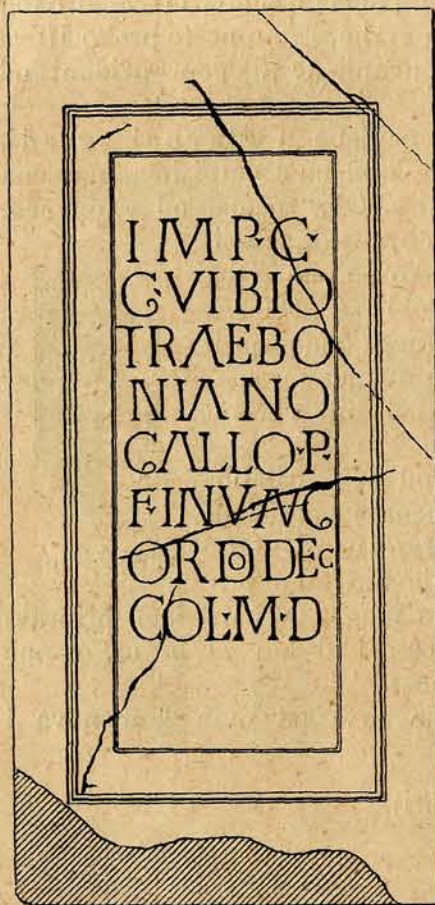 IMP·C·
G·VIBIO
TRAEBO
NIANO
GALLO·P·
F·INV·AVG
ORDO DEC
COL·M·D